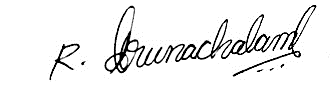 R. Arunachalam